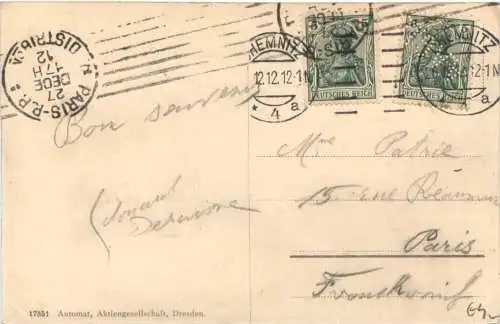 PARIS-R.P. DISTRIBON
17H
27
DECE
12
CHEMNITZ
12.12.12-1N
* 4 a
DEUTSCHES REICH
DEUTSCHES REICH
CHEMNITZ
12-1N
a
Bon souvenir
Edouard
Mme Patrie
15 rue Réaumur
Paris
Frankreich
17651 Automat, Aktiengesellschaft, Dresden.